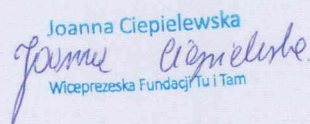 Joanna Ciepielewska
Joanna Ciepielewska
Wiceprezeska Fundacji Tu i Tam